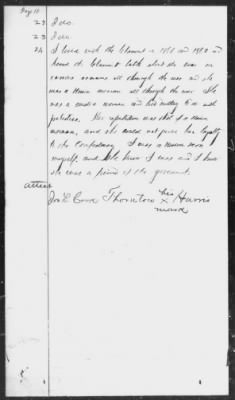 Page 10
22 I do.
23 I do.
24 I lived with the Claimant in 1861 and 1862 and
heard the Claimant talk about the war on
various occasions all through the war and she
was a Union woman all through the war. She
was a woman and had nothing to do with
politics. Her reputation was that of a Union
woman, and she could not prove her loyalty
to the Confederacy. I was a Union man
myself, and she knew I was and I know
she was a friend of the government.
attest
Jos. E. Cone Thornton his x Harris
mark